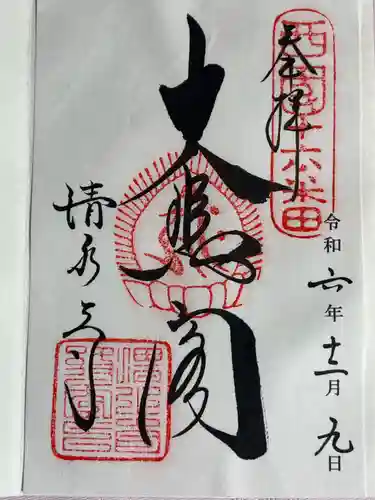 西国十六番
奉拝
令和六年十二月九日
大悲閣
清水寺